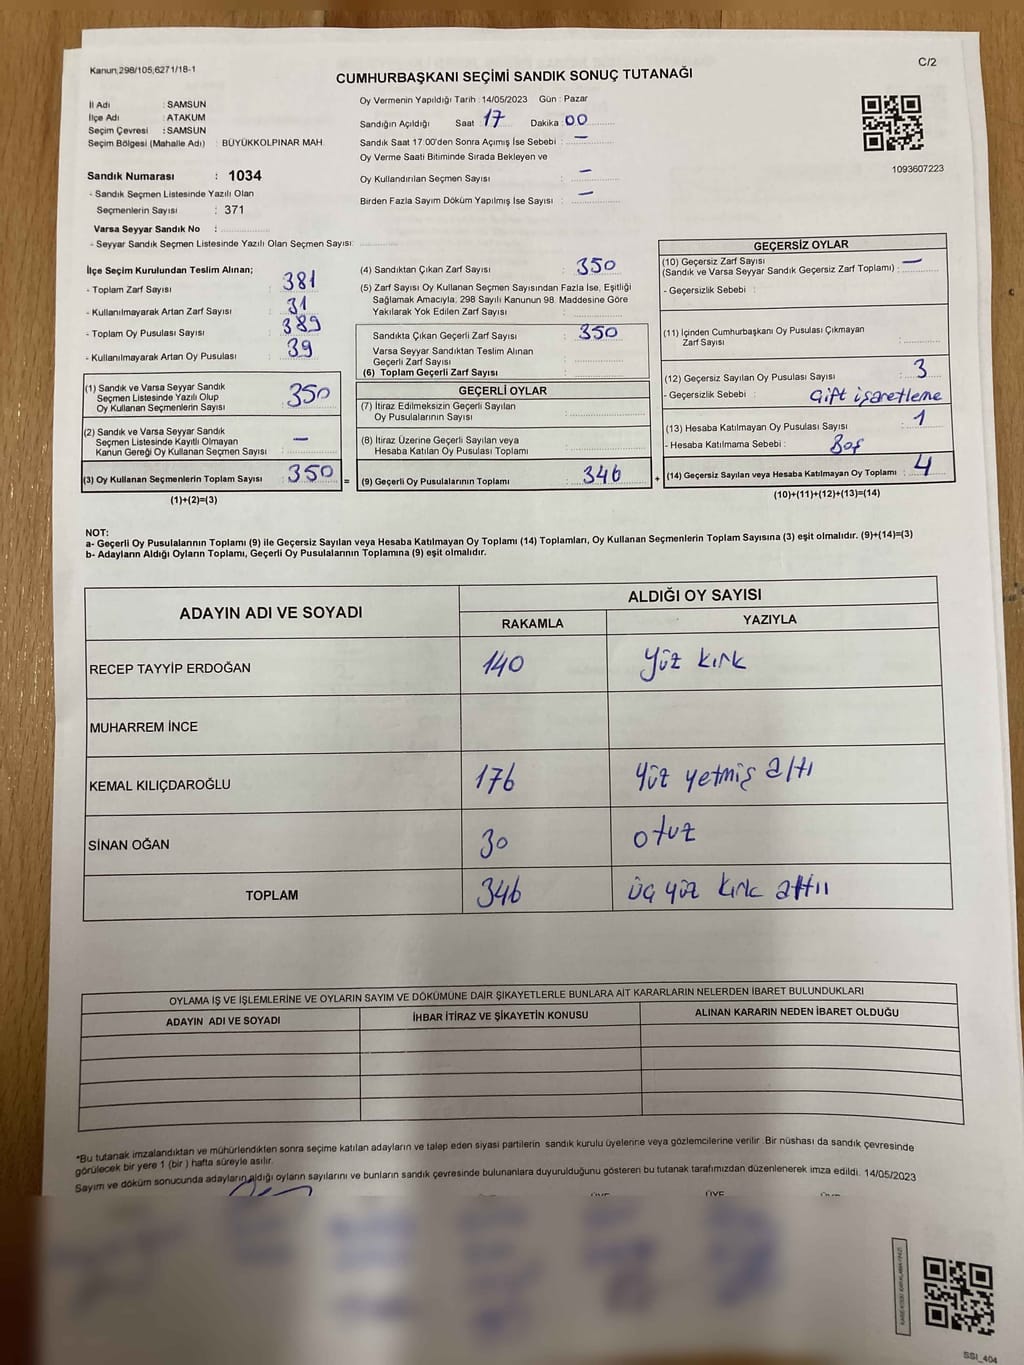 Kanun,298/105,6271/18-1
C/2
CUMHURBAŞKANI SEÇİMİ SANDIK SONUÇ TUTANAĞI
İl Adı : SAMSUN
İlçe Adı : ATAKUM
Seçim Çevresi : SAMSUN
Seçim Bölgesi (Mahalle Adı) : BÜYÜKKOLPINAR MAH.
Sandık Numarası : 1034
- Sandık Seçmen Listesinde Yazılı Olan
Seçmenlerin Sayısı : 371
Varsa Seyyar Sandık No :
- Seyyar Sandık Seçmen Listesinde Yazılı Olan Seçmen Sayısı:
Oy Vermenin Yapıldığı Tarih : 14/05/2023 Gün : Pazar
Sandığın Açıldığı Saat 17 Dakika : 00
Sandık Saat 17:00'den Sonra Açımış İse Sebebi : —
Oy Verme Saati Bitiminde Sırada Bekleyen ve
Oy Kullandırılan Seçmen Sayısı : —
Birden Fazla Sayım Döküm Yapılmış İse Sayısı : —
1093607223
İlçe Seçim Kurulundan Teslim Alınan;
- Toplam Zarf Sayısı : 381
- Kullanılmayarak Artan Zarf Sayısı : 31
- Toplam Oy Pusulası Sayısı : 389
- Kullanılmayarak Artan Oy Pusulası : 39
(1) Sandık ve Varsa Seyyar Sandık
Seçmen Listesinde Yazılı Olup
Oy Kullanan Seçmenlerin Sayısı : 350
(2) Sandık ve Varsa Seyyar Sandık
Seçmen Listesinde Kayıtlı Olmayan
Kanun Gereği Oy Kullanan Seçmen Sayısı : —
(3) Oy Kullanan Seçmenlerin Toplam Sayısı : 350 =
(1)+(2)=(3)
(4) Sandıktan Çıkan Zarf Sayısı : 350
(5) Zarf Sayısı Oy Kullanan Seçmen Sayısından Fazla İse, Eşitliği
Sağlamak Amacıyla, 298 Sayılı Kanunun 98. Maddesine Göre
Yakılarak Yok Edilen Zarf Sayısı :
Sandıkta Çıkan Geçerli Zarf Sayısı : 350
Varsa Seyyar Sandıktan Teslim Alınan
Geçerli Zarf Sayısı :
(6) Toplam Geçerli Zarf Sayısı :
GEÇERLİ OYLAR
(7) İtiraz Edilmeksizin Geçerli Sayılan
Oy Pusulalarının Sayısı :
(8) İtiraz Üzerine Geçerli Sayılan veya
Hesaba Katılan Oy Pusulası Toplamı :
(9) Geçerli Oy Pusulalarının Toplamı : 346 +
GEÇERSİZ OYLAR
(10) Geçersiz Zarf Sayısı : —
(Sandık ve Varsa Seyyar Sandık Geçersiz Zarf Toplamı) :
- Geçersizlik Sebebi :
(11) İçinden Cumhurbaşkanı Oy Pusulası Çıkmayan
Zarf Sayısı :
(12) Geçersiz Sayılan Oy Pusulası Sayısı : 3
- Geçersizlik Sebebi : Çift işaretleme
(13) Hesaba Katılmayan Oy Pusulası Sayısı : 1
- Hesaba Katılmama Sebebi : Boş
(14) Geçersiz Sayılan veya Hesaba Katılmayan Oy Toplamı : 4
(10)+(11)+(12)+(13)=(14)
NOT:
a- Geçerli Oy Pusulalarının Toplamı (9) ile Geçersiz Sayılan veya Hesaba Katılmayan Oy Toplamı (14) Toplamları, Oy Kullanan Seçmenlerin Toplam Sayısına (3) eşit olmalıdır. (9)+(14)=(3)
b- Adayların Aldığı Oyların Toplamı, Geçerli Oy Pusulalarının Toplamına (9) eşit olmalıdır.
ADAYIN ADI VE SOYADI
ALDIĞI OY SAYISI
RAKAMLA YAZIYLA
RECEP TAYYİP ERDOĞAN 140 yüz kırk
MUHARREM İNCE
KEMAL KILIÇDAROĞLU 176 yüz yetmiş altı
SİNAN OĞAN 30 otuz
TOPLAM 346 üç yüz kırk altı
OYLAMA İŞ VE İŞLEMLERİNE VE OYLARIN SAYIM VE DÖKÜMÜNE DAİR ŞİKAYETLERLE BUNLARA AİT KARARLARIN NELERDEN İBARET BULUNDUKLARI
ADAYIN ADI VE SOYADI İHBAR İTİRAZ VE ŞİKAYETİN KONUSU ALINAN KARARIN NEDEN İBARET OLDUĞU
*Bu tutanak imzalandıktan ve mühürlendikten sonra seçime katılan adayların ve talep eden siyasi partilerin sandık kurulu üyelerine veya gözlemcilerine verilir. Bir nüshası da sandık çevresinde
görülecek bir yere 1 (bir ) hafta süreyle asılır.
Sayım ve döküm sonucunda adayların aldığı oyların sayılarını ve bunların sandık çevresinde bulunanlara duyurulduğunu gösteren bu tutanak tarafımızdan düzenlenerek imza edildi. 14/05/2023
ÜYE
SSI_404